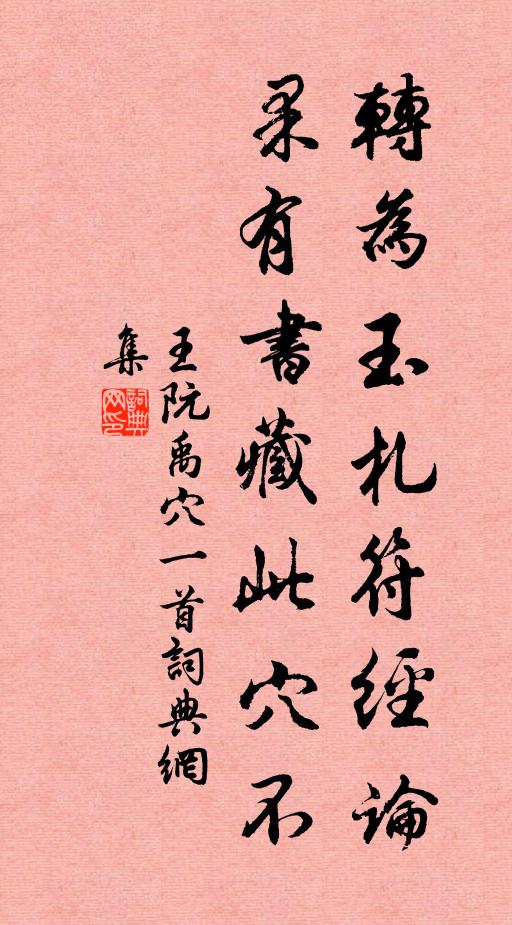 轉為玉札符經論
果有書藏此穴不
王阮禹穴一首詞典網
集
詞典
網印